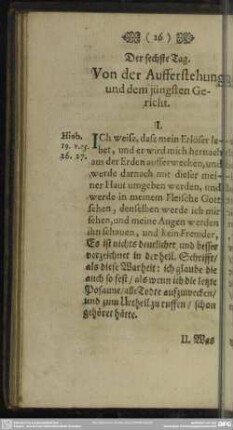 (26)
Der sechste Tag.
Von der Aufferstehung
und dem jüngsten Ge-
richt.
I.
Hiob.
19. v. 25.
26. 27.
ICh weiß, daß mein Erlöser le-
bet, und er wird mich hernach
aus der Erden aufferwecken, und
werde darnach mit dieser mei-
ner Haut umgeben werden, und
werde in meinem Fleische Gott
sehen, denselben werde ich mir
sehen, und meine Augen werden
ihn schauen, und kein Frembder,
Es ist nichts deutlicher und besser
verzeichnet in der heil. Schrifft/
als diese Warheit: ich glaube die
auch so fest/ als wenn ich die letzte
Posaune/ alle Todte aufzuwecken/
und zum Urtheil zu ruffen/ schon
gehöret hätte.
II. Was